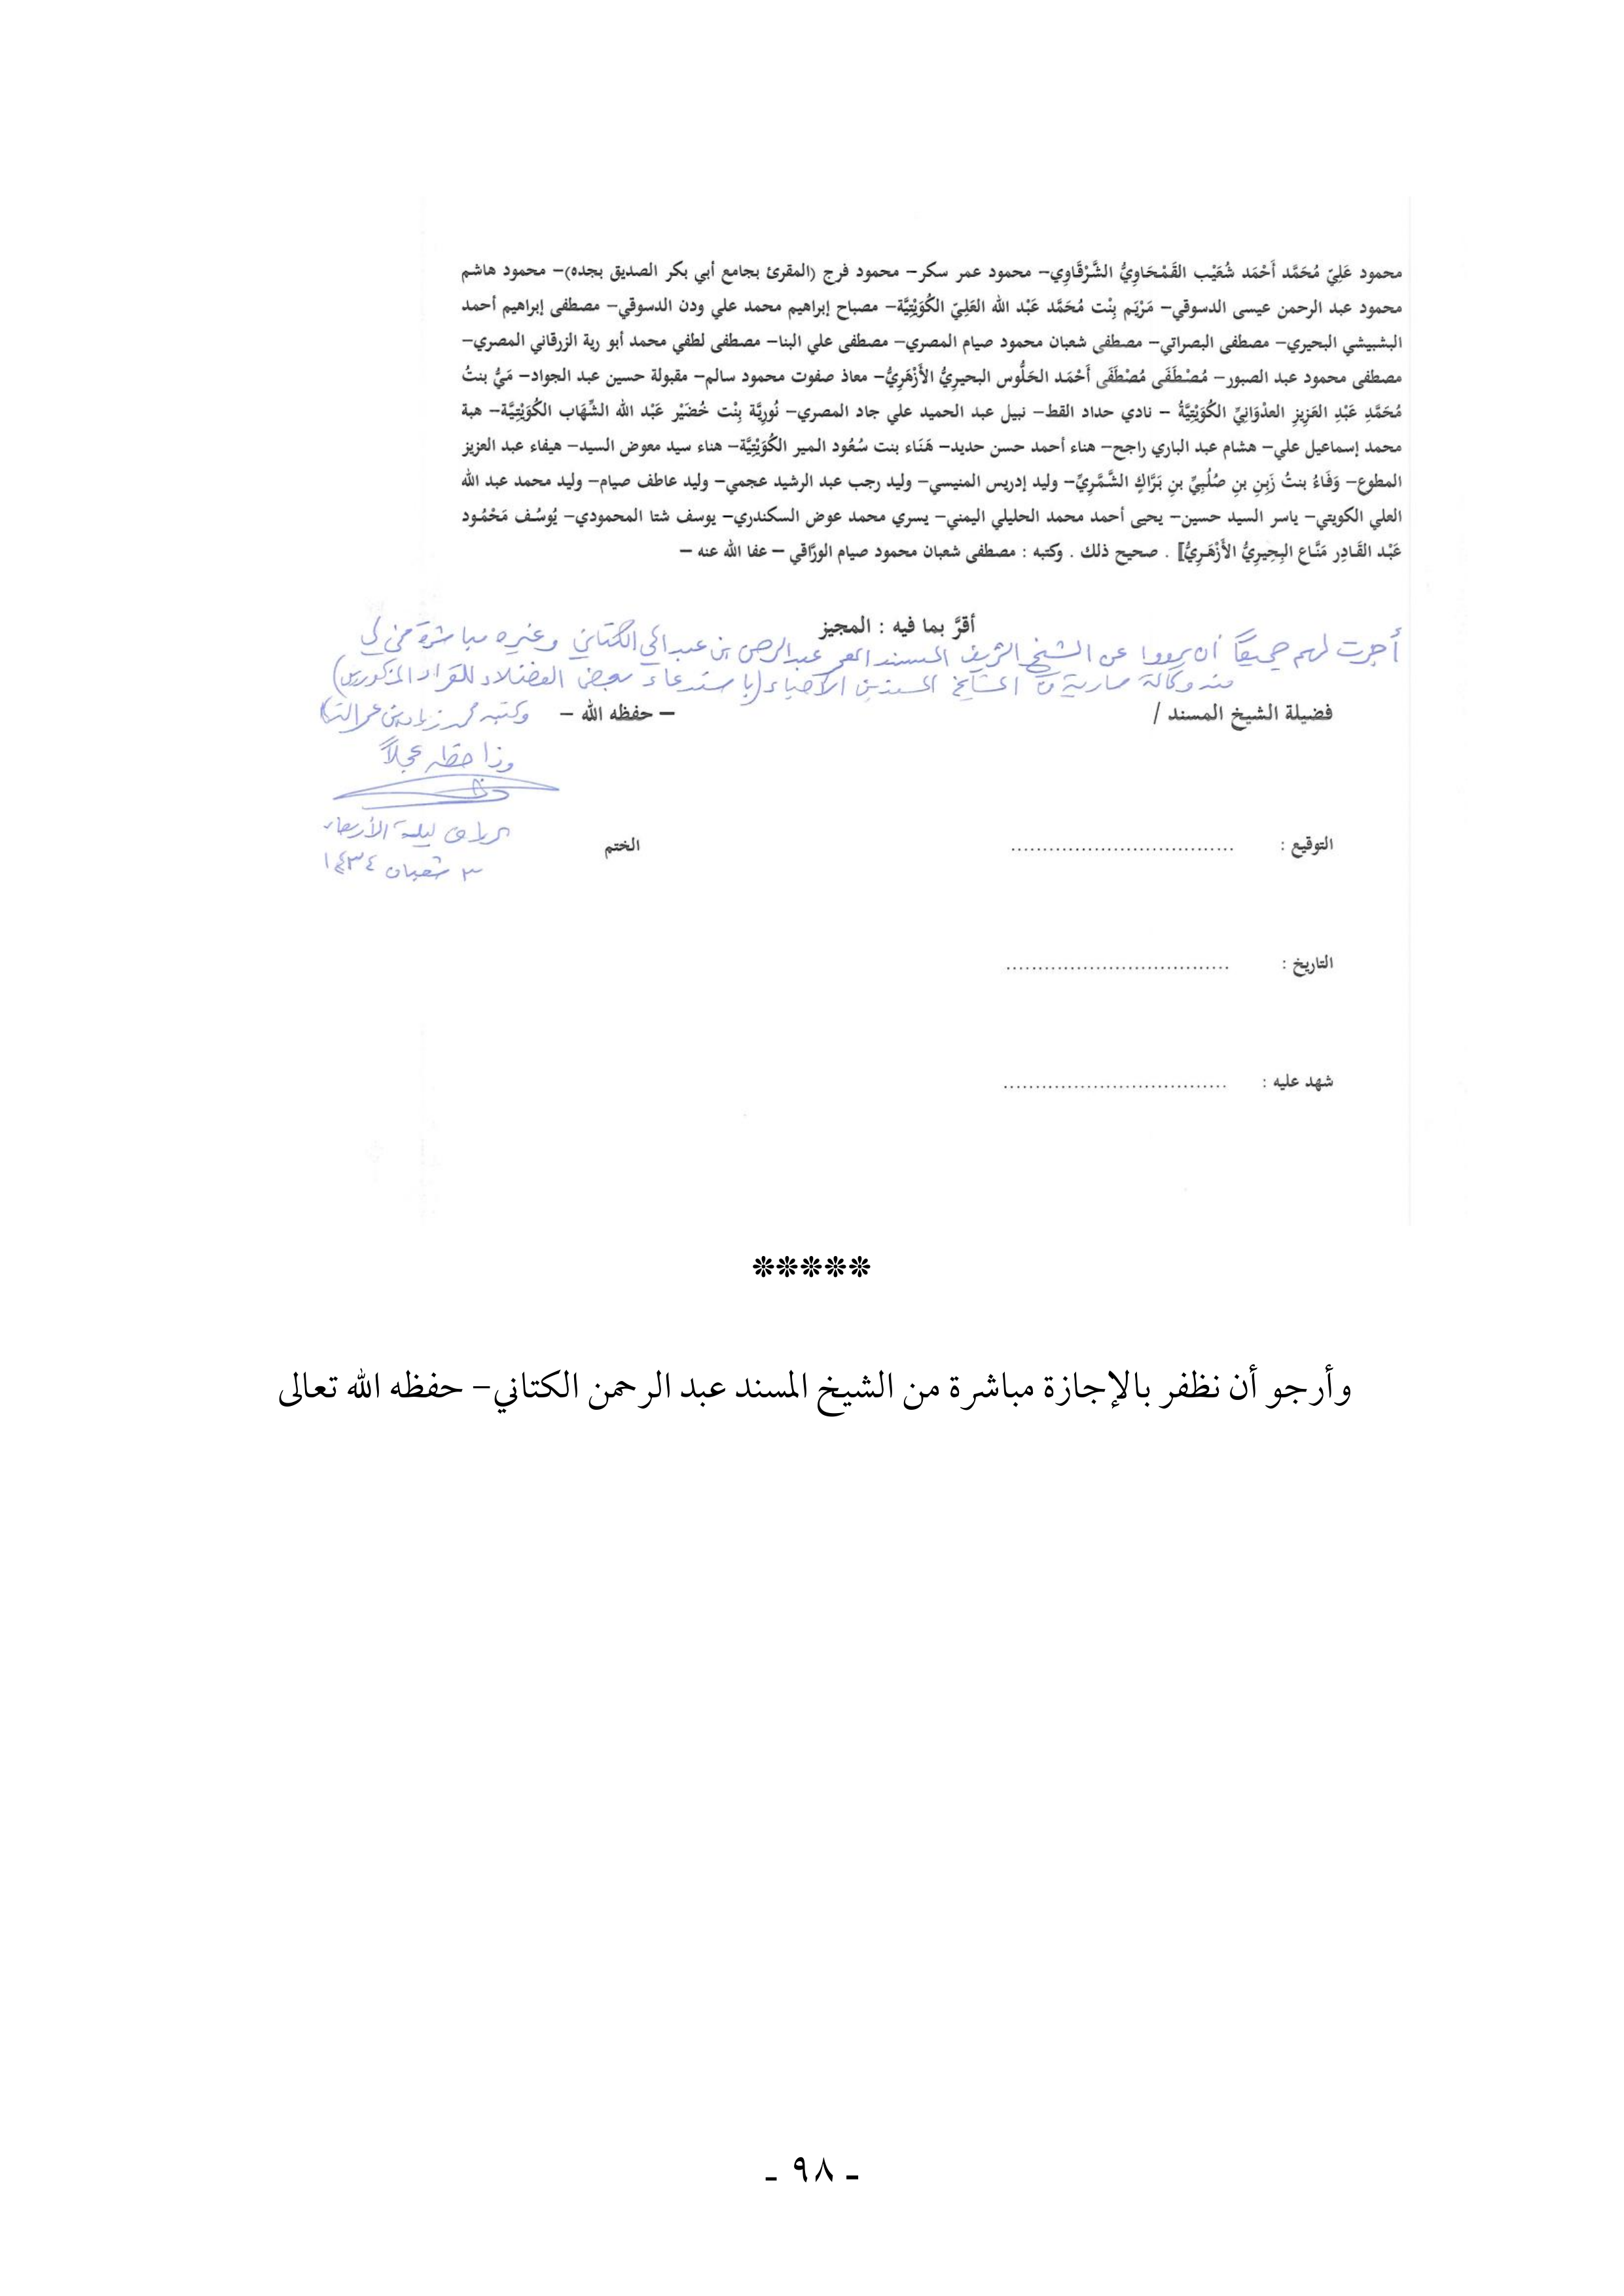 محمود عَلِيّ مُحَمَّد أَحْمَد شُعَيْب القَمْحَاوِيُّ الشَّرْقَاوِي– محمود عمر سكر– محمود فرج (المقرئ بجامع أبي بكر الصديق بجده)– محمود هاشم
محمود عبد الرحمن عيسى الدسوقي– مَرْيَم بِنْت مُحَمَّد عَبْد الله العَلِيّ الكُوَيْتِيَّة– مصباح إبراهيم محمد علي ودن الدسوقي– مصطفى إبراهيم أحمد
البشبيشي البحيري– مصطفى البصراتي– مصطفى شعبان محمود صيام المصري– مصطفى علي البنا– مصطفى لطفي محمد أبو رية الزرقاني المصري–
مصطفى محمود عبد الصبور– مُصْطَفَى مُصْطَفَى أَحْمَد الحَلُّوس البحيرِيُّ الأَزْهَرِيُّ– معاذ صفوت محمود سالم– مقبولة حسين عبد الجواد– مَيُّ بنتُ
مُحَمَّدِ عَبْدِ العَزِيزِ العدْوَانِيِّ الكُوَيْتِيَّةُ – نادي حداد القط– نبيل عبد الحميد علي جاد المصري– نُورِيَّة بِنْت خُضَيْر عَبْد الله الشِّهَاب الكُوَيْتِيَّة– هبة
محمد إسماعيل علي– هشام عبد الباري راجح– هناء أحمد حسن حديد– هَنَاء بنت سُعُود المير الكُوَيْتِيَّة– هناء سيد معوض السيد– هيفاء عبد العزيز
المطوع– وَفَاءُ بنتُ زَبِنِ بنِ صُلُبِيِّ بنِ بَرَّاكٍ الشَّمَّرِيِّ– وليد إدريس المنيسي– وليد رجب عبد الرشيد عجمي– وليد عاطف صيام– وليد محمد عبد الله
العلي الكويتي– ياسر السيد حسين– يحيى أحمد محمد الحليلي اليمني– يسري محمد عوض السكندري– يوسف شتا المحمودي– يُوسُف مَحْمُود
عَبْد القَادِر مَنَّاع البِحِيرِيُّ الأَزْهَرِيُّ] . صحيح ذلك . وكتبه : مصطفى شعبان محمود صيام الورَّاقي – عفا الله عنه –
أقرَّ بما فيه : المجيز
أجزت لهم جميعًا أن يرووا عن الشيخ الشريف المسند المعمر عبد الرحمن بن عبد الحي الكتاني وغيره مباشرة مني لي
منه وكالة سارية من المشايخ المسندين الأحياء (باستدعاء بعض الفضلاء للقراء المذكورين)
فضيلة الشيخ المسند / – حفظه الله – وكتبه محمد زياد بن عمر التكلة
وذا خطه عجلاً
الرياض ليلة الأربعاء
٣ شعبان ١٤٣٤
التوقيع : .................................. الختم
التاريخ : ..................................
شهد عليه : ..................................
❊❊❊❊❊
وأرجو أن نظفر بالإجازة مباشرة من الشيخ المسند عبد الرحمن الكتاني– حفظه الله تعالى
ـ ٩٨ ـ